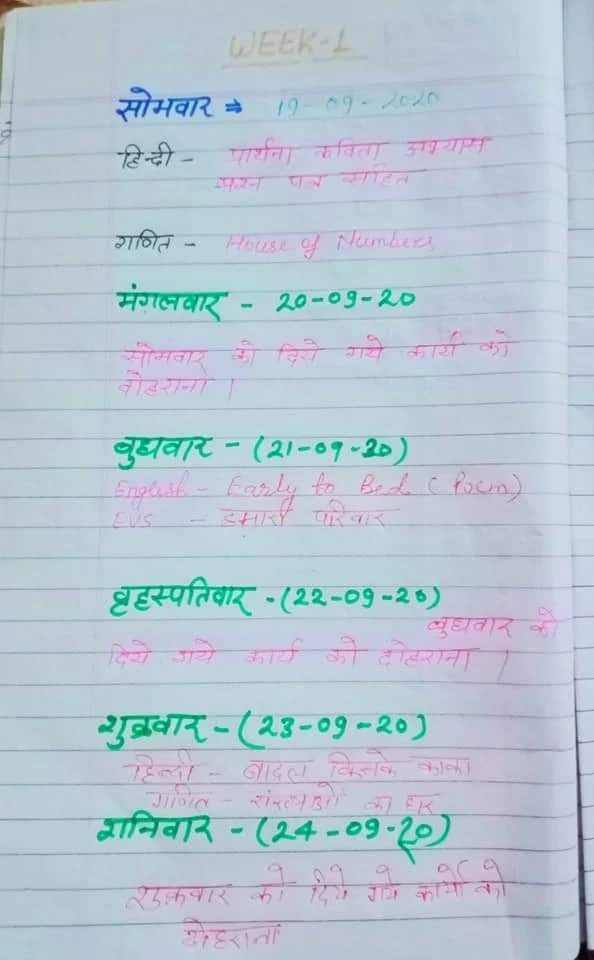 WEEK-1
सोमवार ⇒ 19-09-2020
हिन्दी - प्रार्थना कविता अभ्यास
प्रश्न पत्र सहित
गणित - House of Numbers
मंगलवार - 20-09-20
सोमवार को दिये गये कार्य को
दोहराना ।
बुधवार - (21-09-20)
English - Early to Bed (Poem)
EVS - हमारा परिवार
बृहस्पतिवार - (22-09-20)
बुधवार को
दिये गये कार्य को दोहराना ।
शुक्रवार - (23-09-20)
हिन्दी - बादल किसके काका
गणित - संख्याओं का घर
शनिवार - (24-09-20)
शुक्रवार को दिये गये कार्यो को
दोहराना